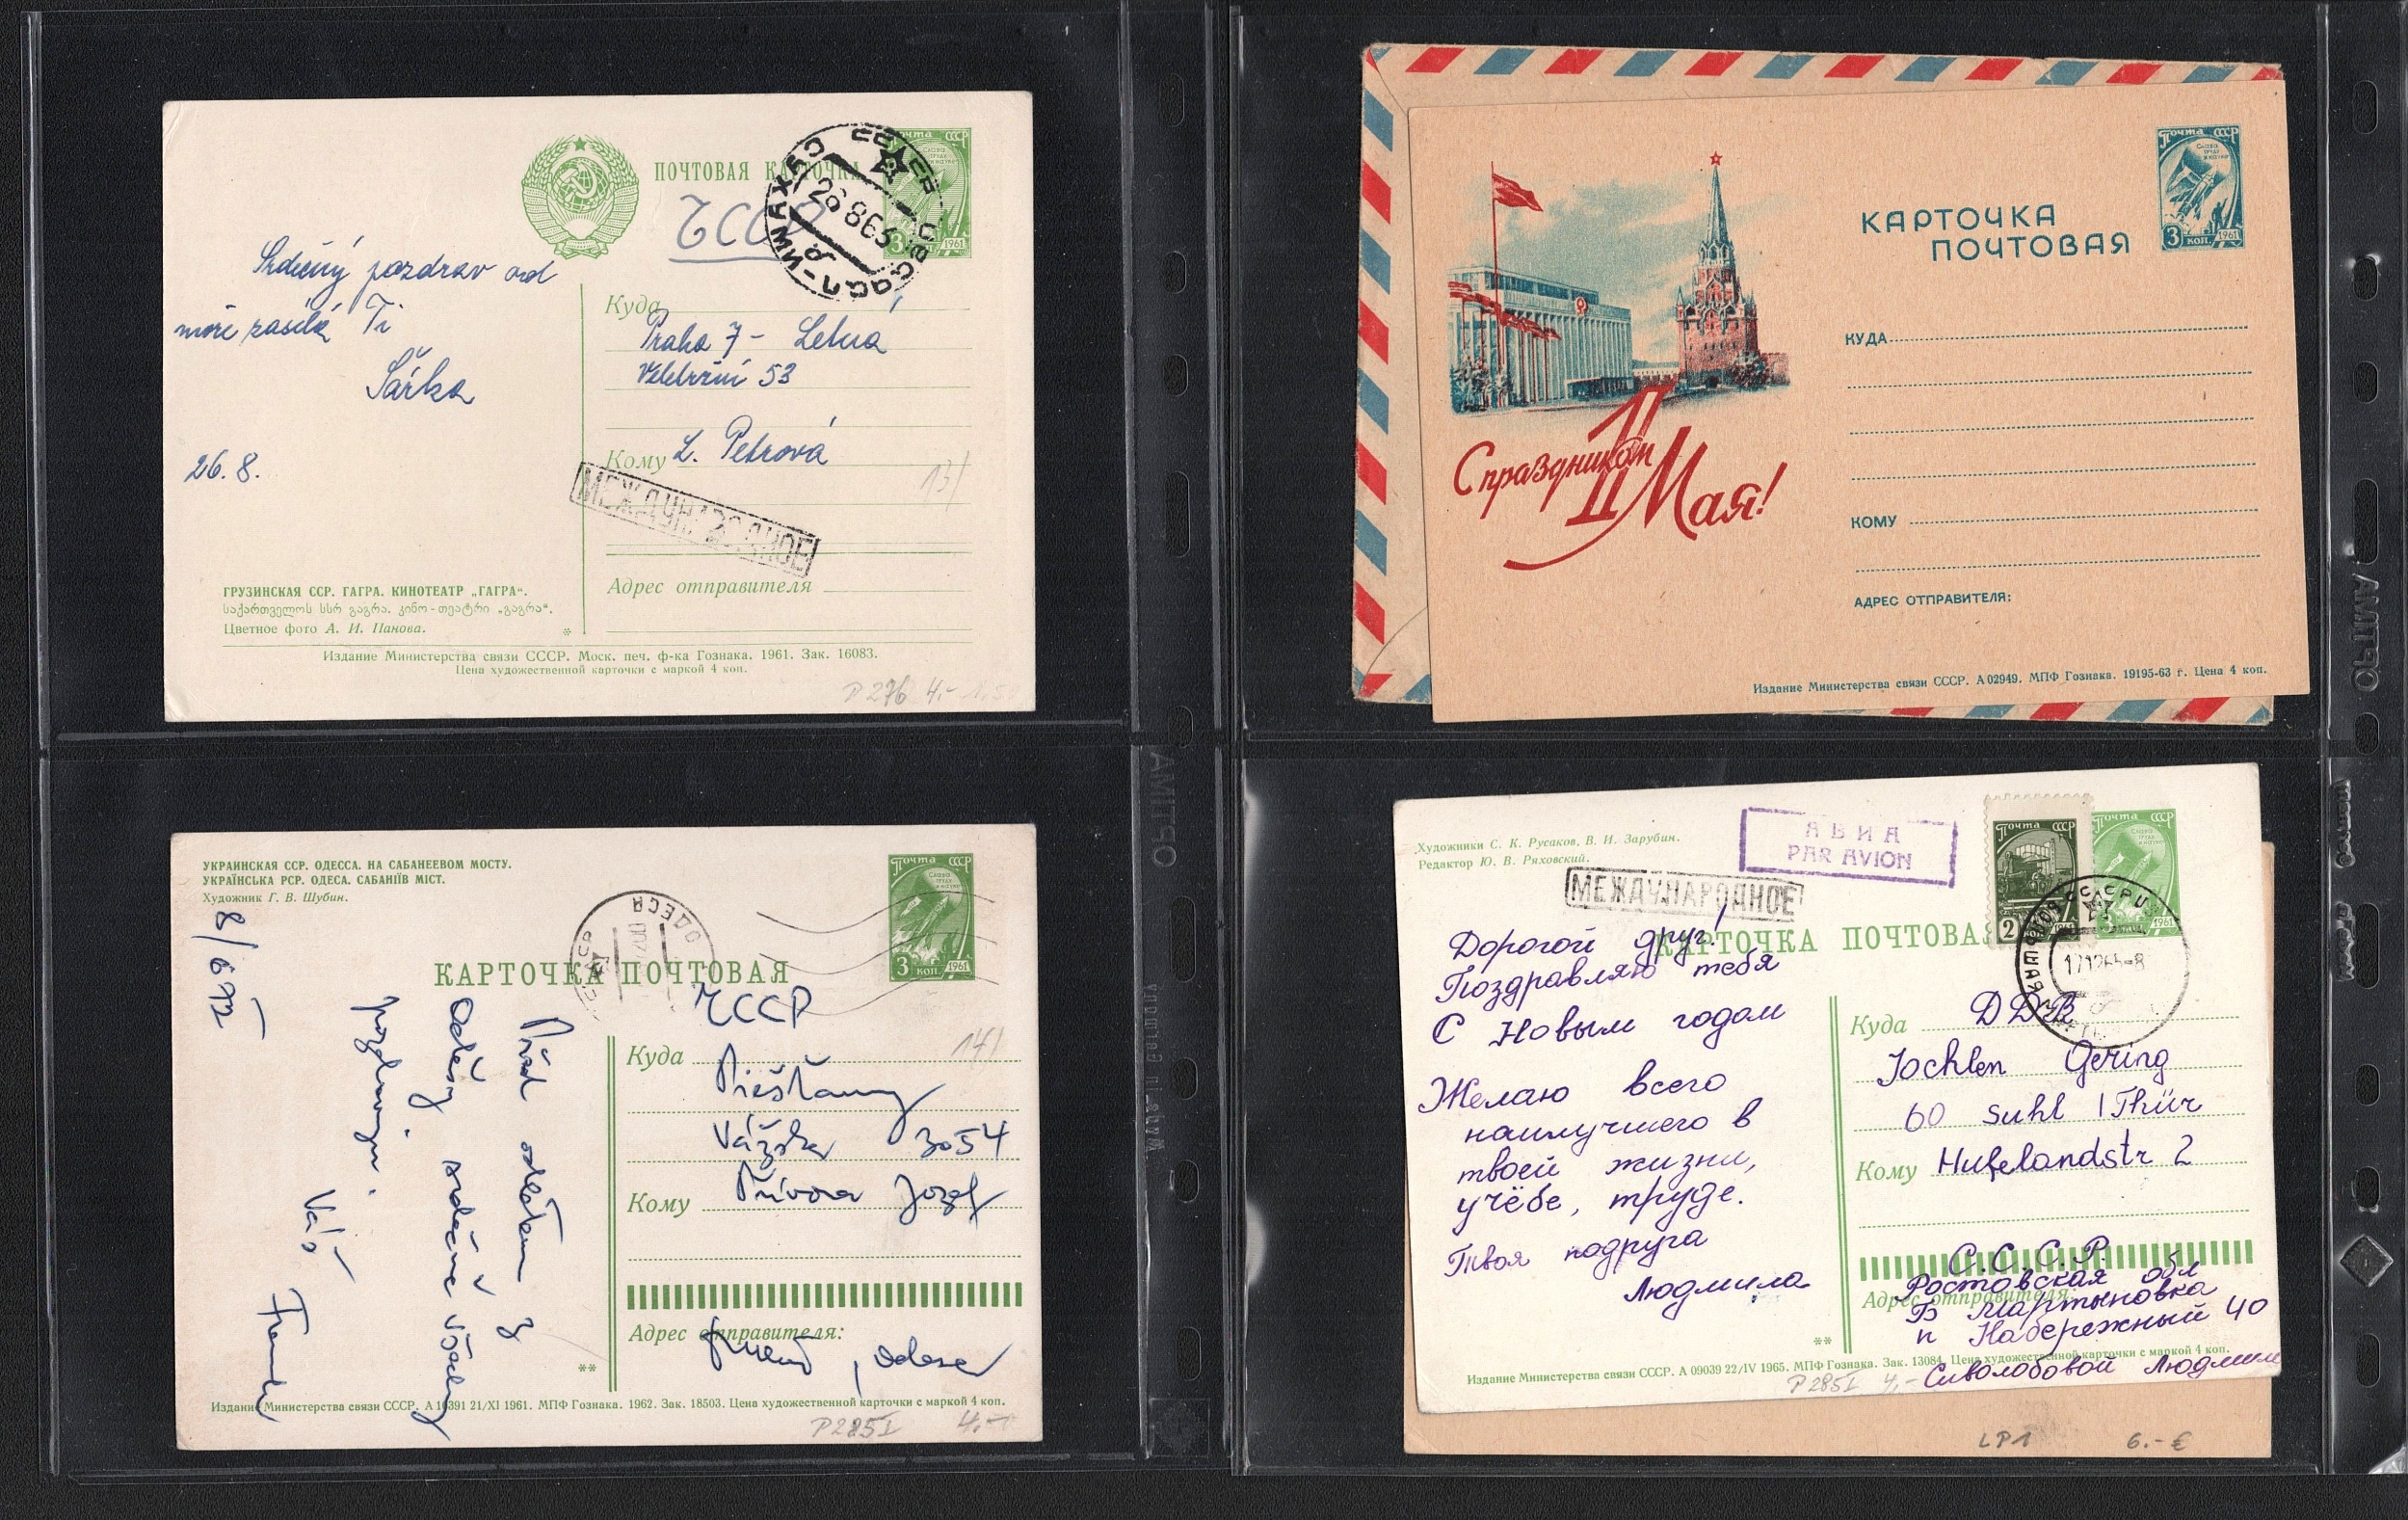 ПОЧТОВАЯ КАРТОЧКА
почта СССР
3 коп 1961
ČSSR
26 8 63
Srdečný pozdrav od
moře zasílá Ti
Šárka
26. 8.
Куда
Praha 7 - Letná
Veletržní 53
Кому L. Petrová
13/
МЕЖДУНАРОДНОЕ
Адрес отправителя
ГРУЗИНСКАЯ ССР. ГАГРА. КИНОТЕАТР „ГАГРА“.
საქართველოს სსრ გაგრა. კინო-თეატრი „გაგრა“.
Цветное фото А. И. Панова.
*
Издание Министерства связи СССР. Моск. печ. ф-ка Гознака. 1961. Зак. 16083.
Цена художественной карточки с маркой 4 коп.
P 276 4,-
почта СССР
СЛАВА ТРУДУ И НАУКЕ
3 коп. 1961
КАРТОЧКА
ПОЧТОВАЯ
С праздником
1 Мая!
КУДА
КОМУ
АДРЕС ОТПРАВИТЕЛЯ:
Издание Министерства связи СССР. А 02949. МПФ Гознака. 19195-63 г. Цена 4 коп.
УКРАИНСКАЯ ССР. ОДЕССА. НА САБАНЕЕВОМ МОСТУ.
УКРАЇНСЬКА РСР. ОДЕСА. САБАНІЇВ МІСТ.
Художник Г. В. Шубин.
почта СССР
3 коп. 1961
ОДЕССА
КАРТОЧКА ПОЧТОВАЯ
ČSSR
14/
Куда
Piešťany
Vážska 3054
Кому
Jozef
Адрес отправителя:
Odesa
**
Издание Министерства связи СССР. А 10391 21/XI 1961. МПФ Гознака. 1962. Зак. 18503. Цена художественной карточки с маркой 4 коп.
P 285 I 4,-
Художники С. К. Русаков, В. И. Зарубин.
Редактор Ю. В. Ряховский.
АВИА
PAR AVION
МЕЖДУНАРОДНОЕ
почта СССР
2 коп 1961
почта СССР
1961
КАРТОЧКА ПОЧТОВАЯ
171265-8
Дорогой друг!
Поздравляю тебя
С Новым годом
Желаю всего
наилучшего в
твоей жизни,
учёбе, труде.
Твоя подруга
Людмила
Куда DDR
Jochlen Gering
60 Suhl / Thür
Кому Hufelandstr 2
С.С.С.Р.
Ростовская обл
Адрес отправителя:
Б Мартыновка
п Набережный 40
Сиволобовой Людмиле
**
Издание Министерства связи СССР. А 09039 22/IV 1965. МПФ Гознака. Зак. 13084. Цена художественной карточки с маркой 4 коп.
P 285 I 4,-
LP1 6.-€
OPTIMA
OPTIMA